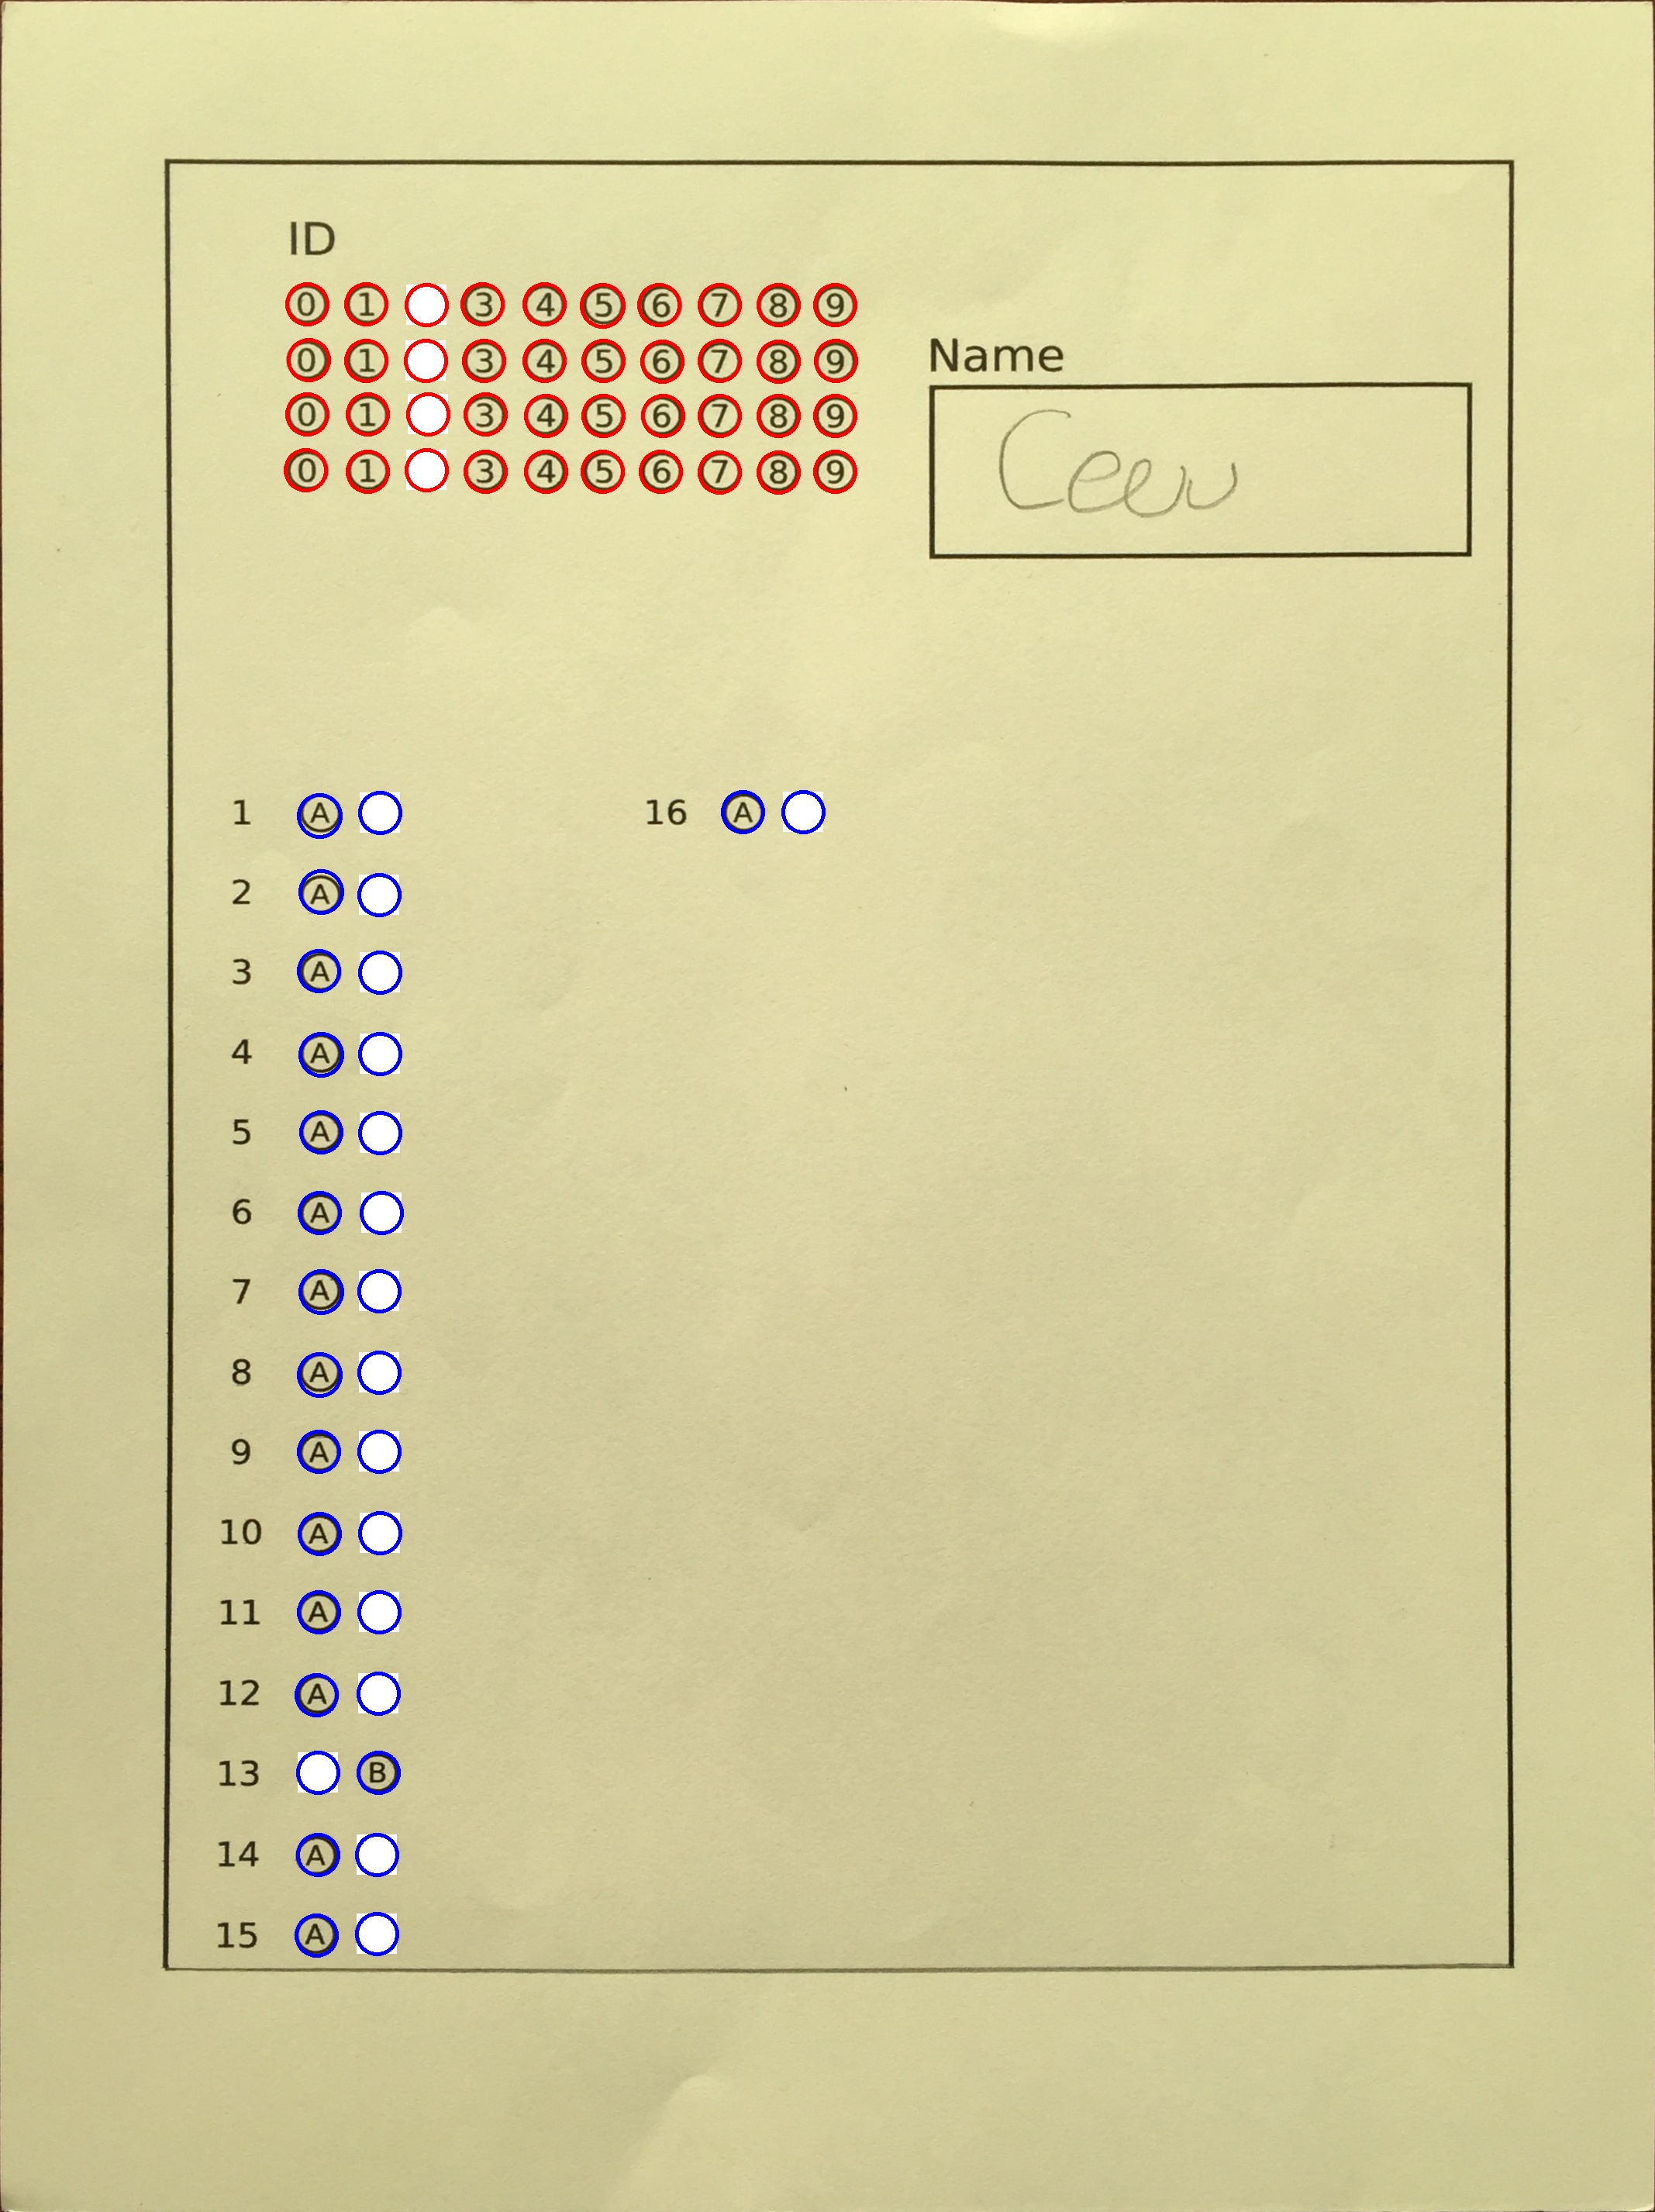 ID
0 1 3 4 5 6 7 8 9
0 1 3 4 5 6 7 8 9
0 1 3 4 5 6 7 8 9
0 1 3 4 5 6 7 8 9
Name
1 A
2 A
3 A
4 A
5 A
6 A
7 A
8 A
9 A
10 A
11 A
12 A
13 B
14 A
15 A
16 A